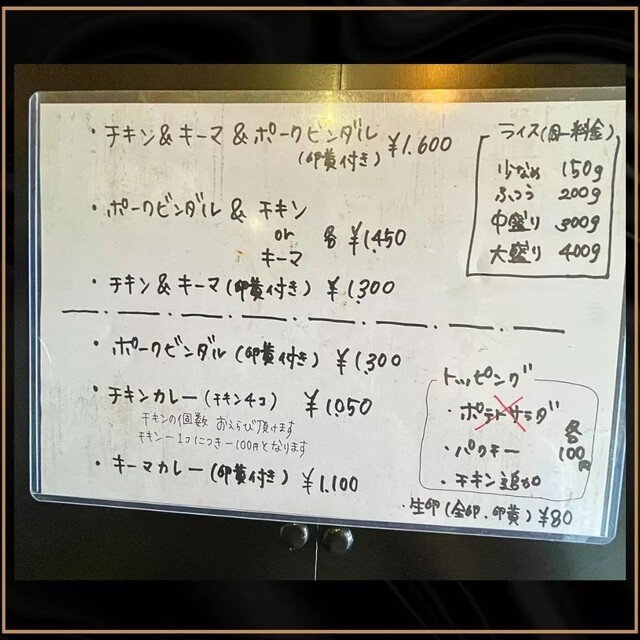 ・チキン&キーマ&ポークビンダル ¥1.600
(卵黄付き)
・ポークビンダル & チキン
or 各 ¥1450
キーマ
・チキン&キーマ(卵黄付き) ¥1300
・ポークビンダル(卵黄付き) ¥1300
・チキンカレー(チキン4コ) ¥1050
チキンの個数 おえらび頂けます
チキン一1コにつき一100円となります
・キーマカレー(卵黄付き) ¥1.100
ライス(同一料金)
少なめ 150g
ふつう 200g
中盛り 300g
大盛り 400g
トッピング
・ポテトサラダ
・パクチー
・チキン追加
各100円
・生卵(全卵、卵黄) ¥80